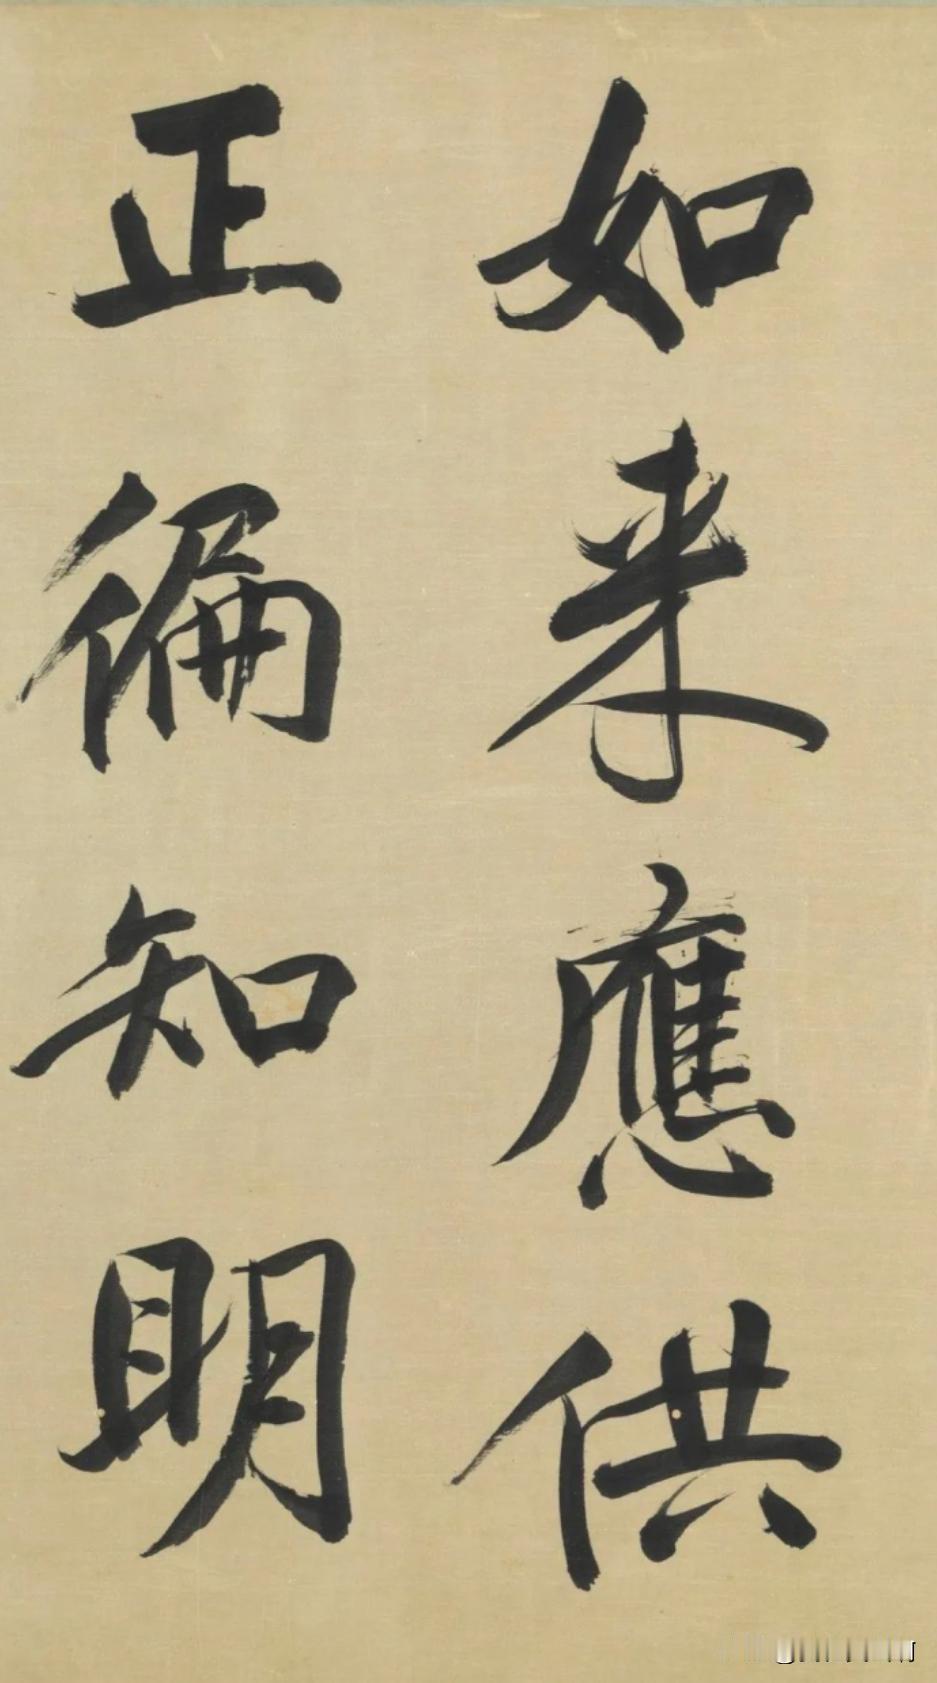 如来應供
正徧知明